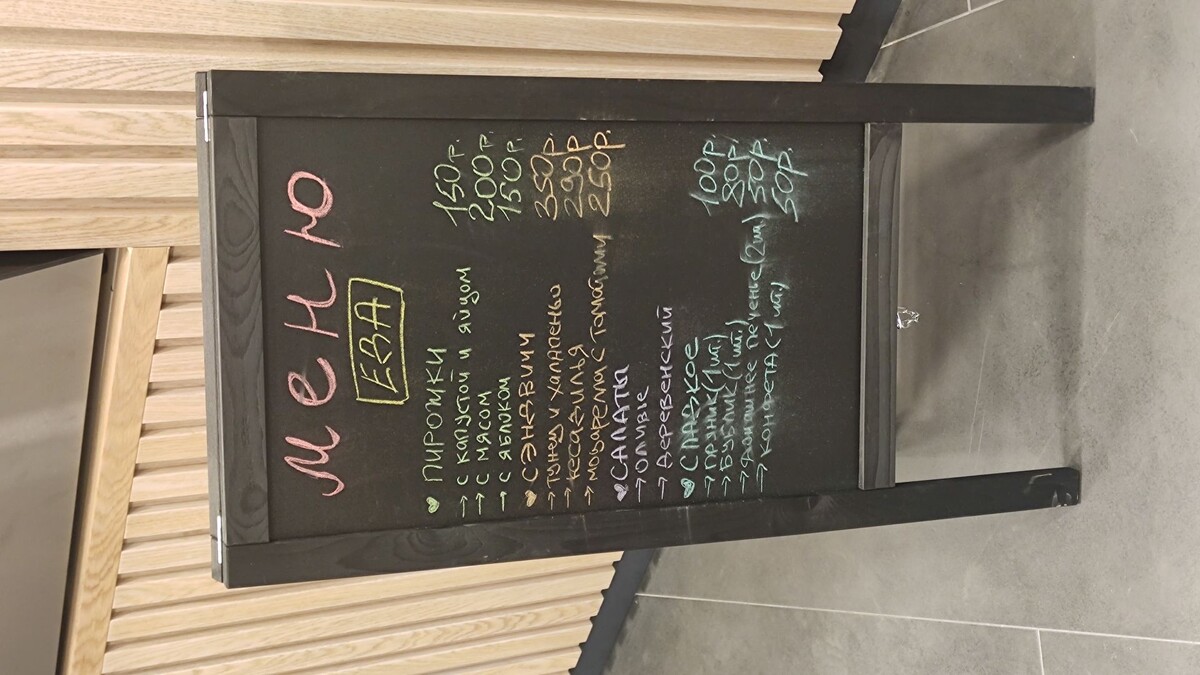 Меню
ЕВА
ПИРОЖКИ
→ с капустой и яйцом 150р.
→ с мясом 200р.
→ с яблоком 150р.
СЭНДВИЧИ
→ тунец и халапеньо 350р.
→ кесадилья 290р.
→ моцарелла с томатами 250р.
САЛАТЫ
→ оливье
→ деревенский
СЛАДКОЕ
→ ПРЯНИК (1 шт.) 100р.
→ БУБЛИК (1 шт.) 80р.
→ домашнее печенье (2 шт.) 50р.
→ конфета (1 шт.) 50р.